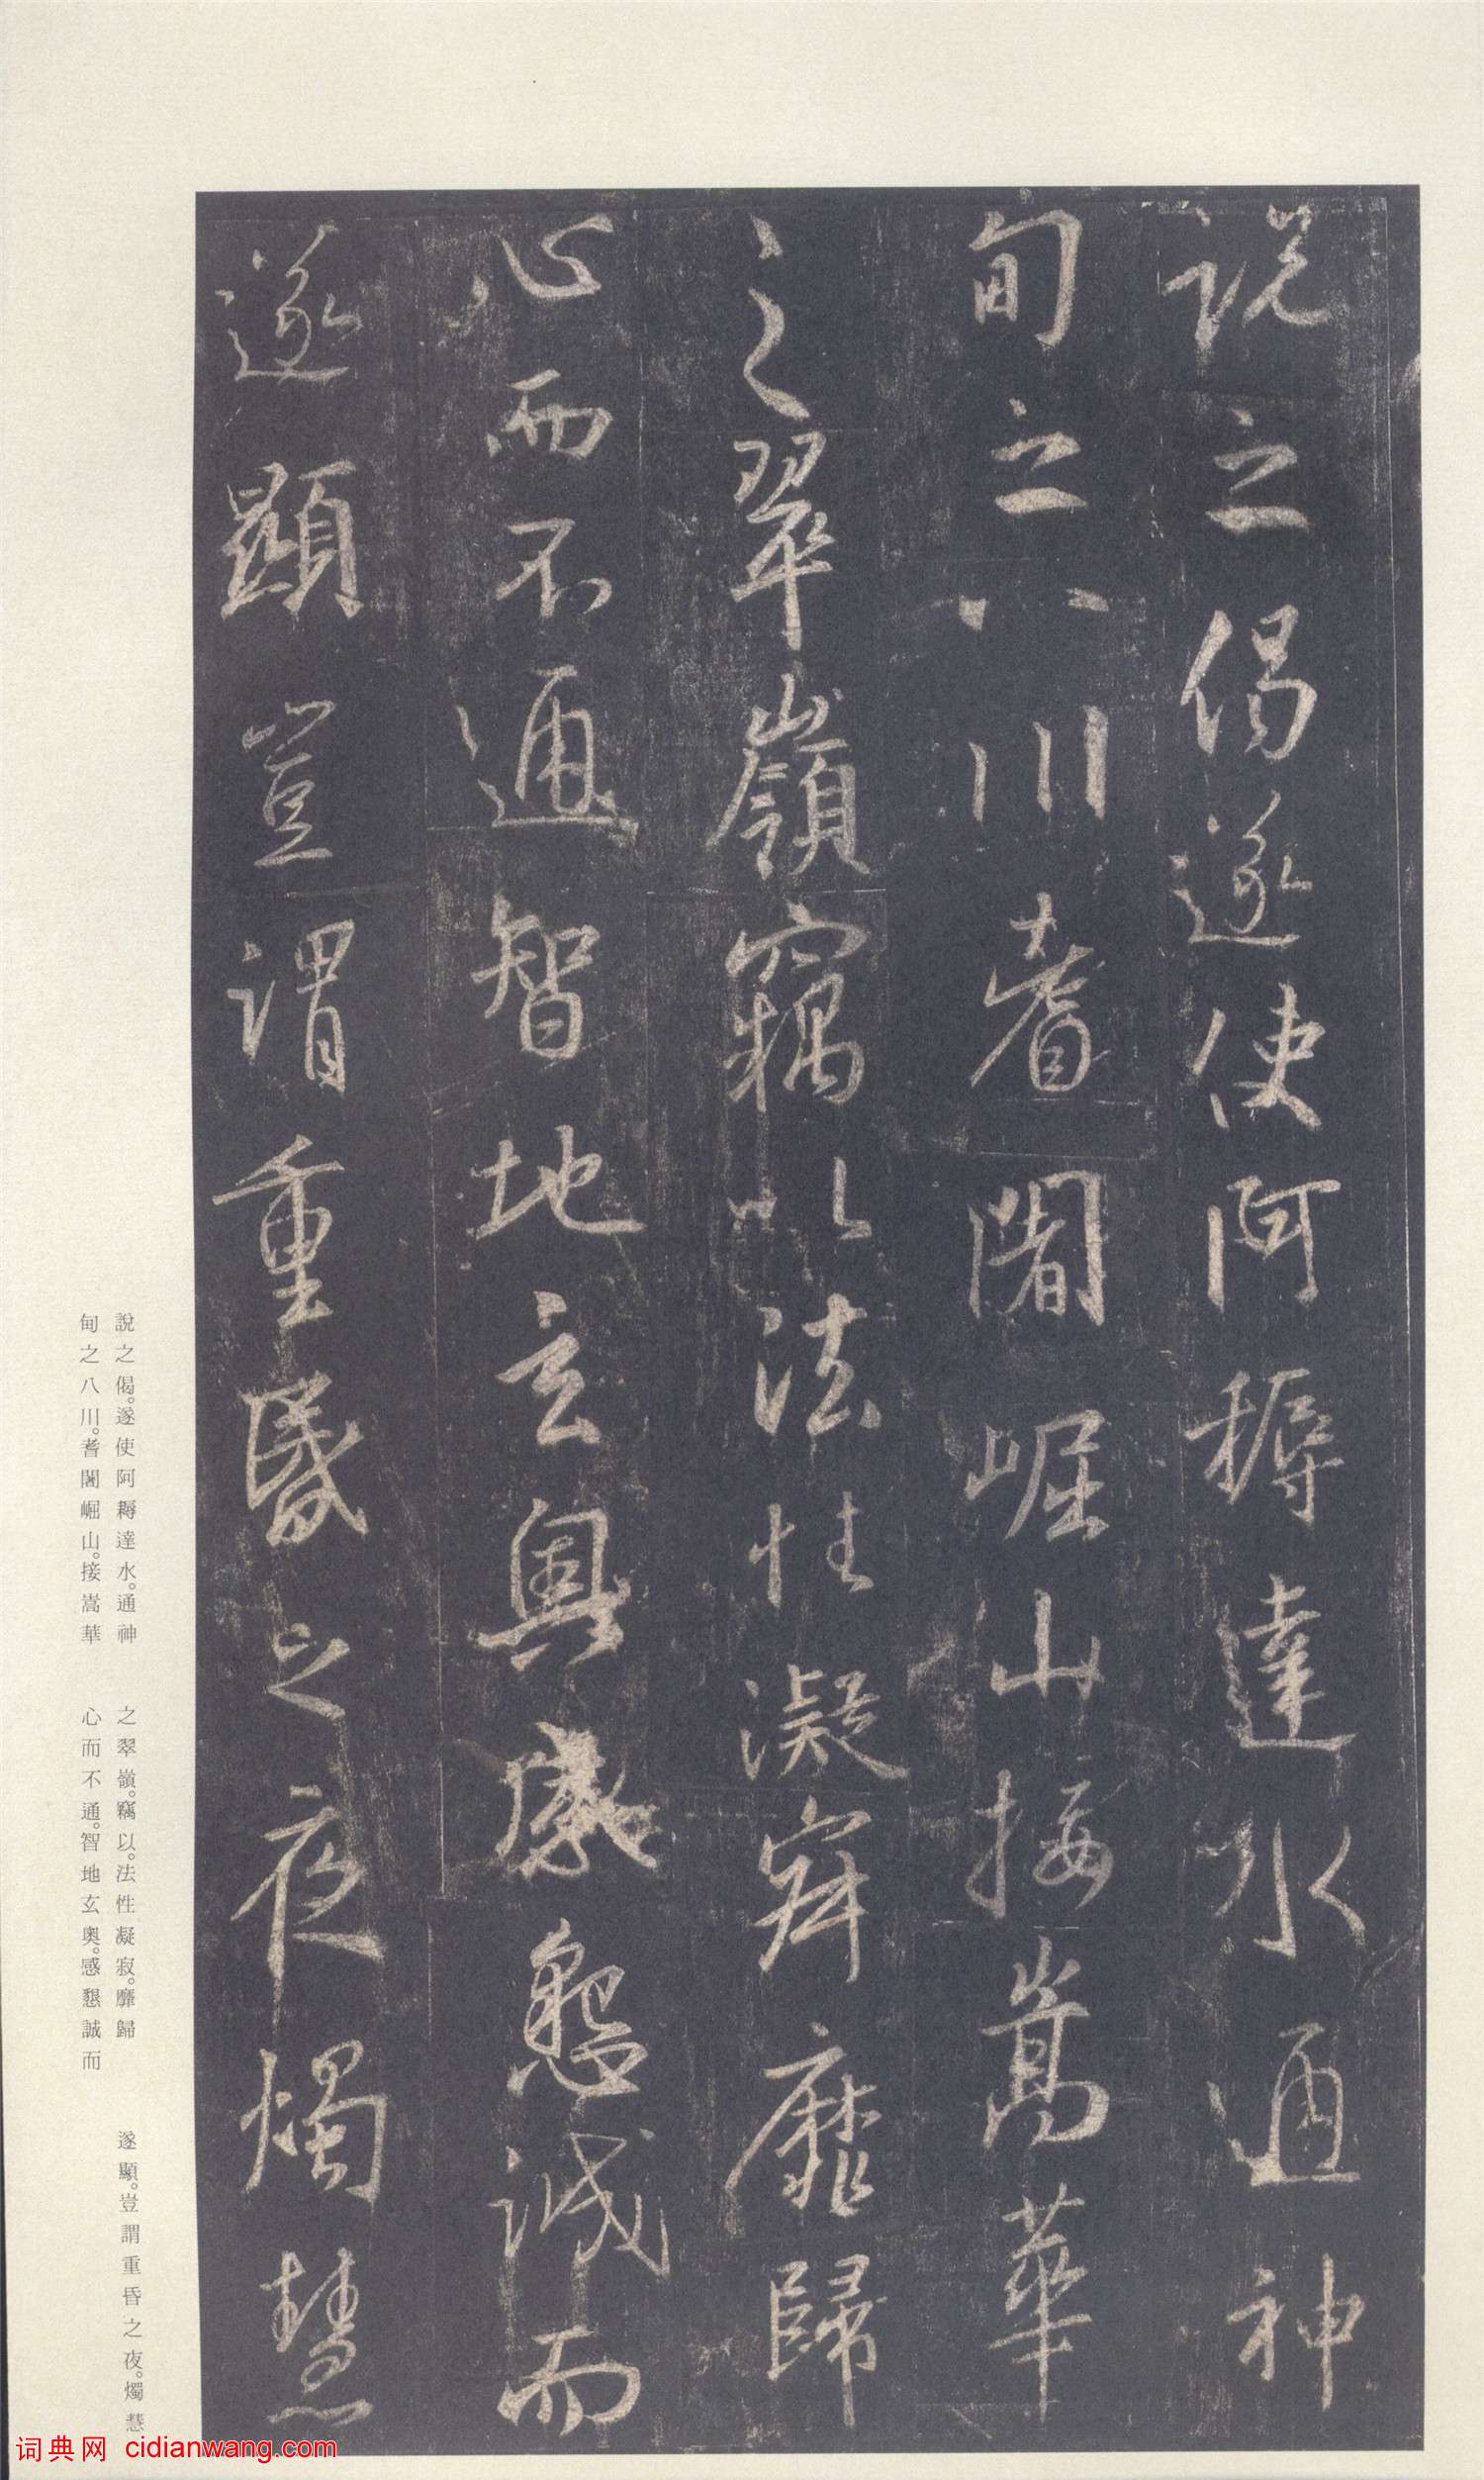 說之偈遂使阿耨達水通神
甸之八川耆闍崛山接嵩華
之翠嶺竊以法性凝寂靡歸
心而不通智地玄奥感懇誠而
遂顯豈謂重昏之夜燭慧
說之偈。遂使阿耨達水。通神
甸之八川。耆闍崛山。接嵩華
之翠嶺。竊以。法性凝寂。靡歸
心而不通。智地玄奧。感懇誠而
遂顯。豈謂重昏之夜。燭慧
词典网 cidianwang.com